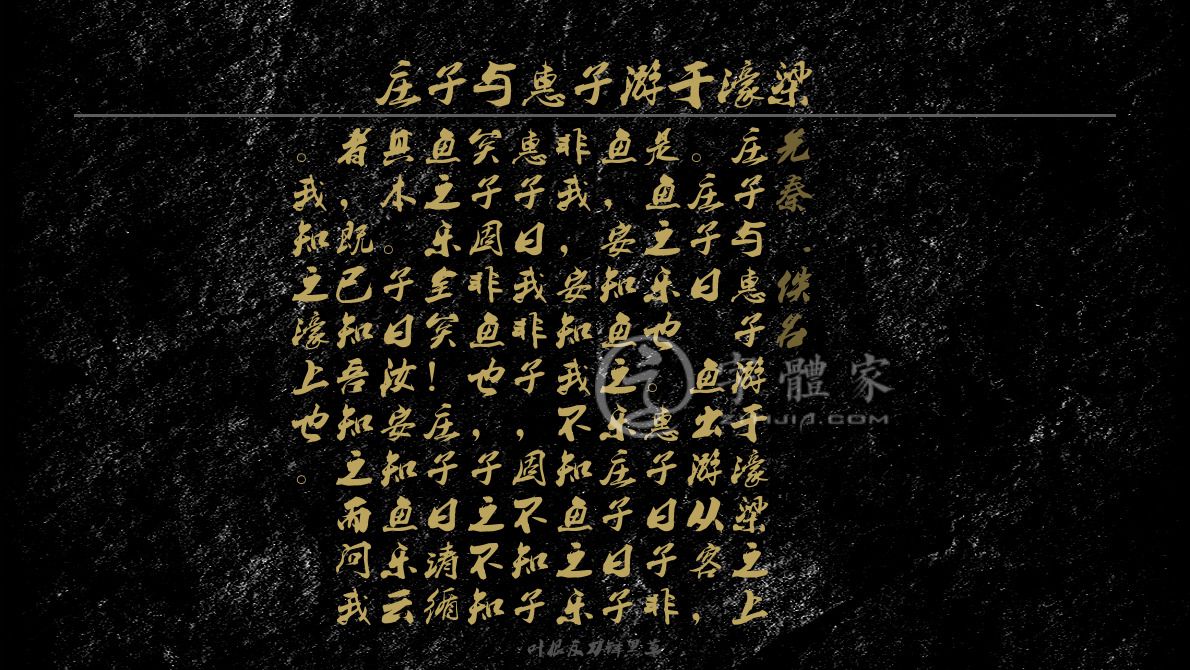 庄子与惠子游于濠梁
先秦 · 佚名
庄子与惠子游于濠梁之上
。庄子曰 鱼出游从容，
是鱼之乐也。惠子曰子非
鱼，安知鱼之乐庄子曰子
非我，安知我不知鱼之乐
惠子曰我非子，固不知子
矣子固非鱼也，子之不知
鱼之乐全矣！庄子曰请循
其本。子曰汝安知鱼乐云
者，既已知吾知之而问我
。我知之濠上也。
字體家
ZITIJIA.COM
叶根友刀锋黑草